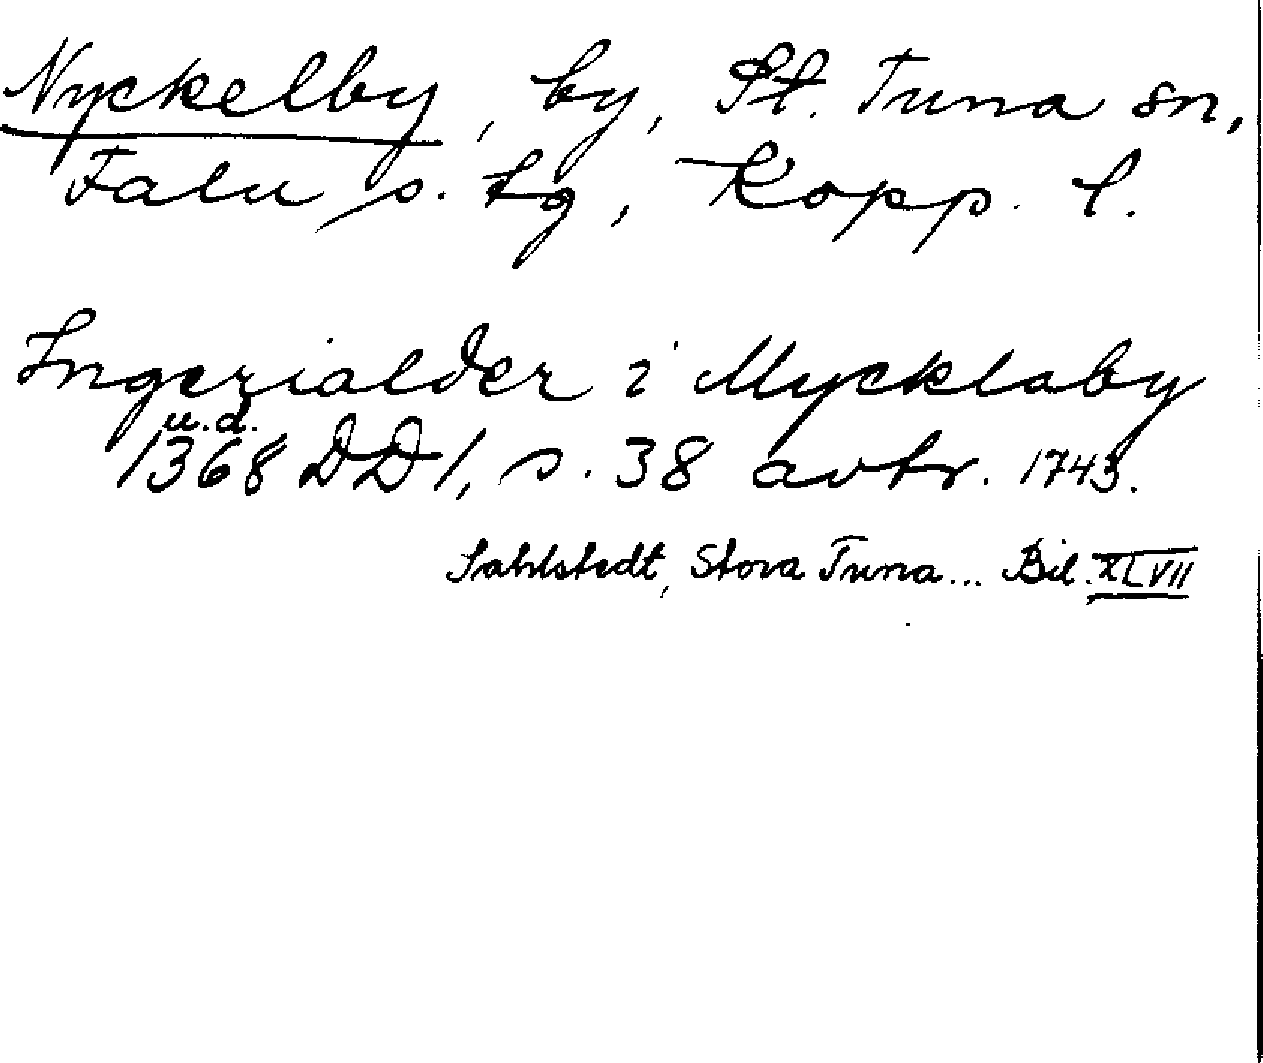 Nyckelby, by, St. Tuna sn,
Falu s. tg, Kopp. l.
Ingerialder i Mycklaby
u.d.
1368 DD1, s. 38 avtr. 1743.
Sahlstedt, Stora Tuna... Bil. XLVII